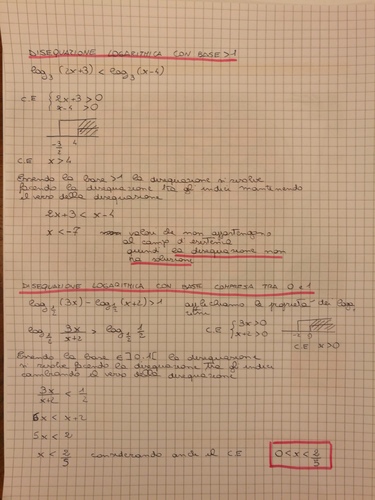 DISEQUAZIONE LOGARITMICA CON BASE >1
log₃ (2x+3) < log₃ (x-4)
C.E { 2x+3 > 0
x-4 > 0
-3/2 4
C.E x > 4
Essendo la base >1 la disequazione si risolve
facendo la disequazione tra gli indici mantenendo
il verso della disequazione
2x+3 < x-4
x < -7 valori che non appartengono
al campo d'esistenza
quindi la disequazione non
ha soluzioni
DISEQUAZIONE LOGARITMICA CON BASE COMPRESA TRA 0 e 1
log½ (3x) - log½ (x+2) > 1 applichiamo la proprietà dei loga
ritmi
log½ 3x/x+2 > log½ 1/2 C.E { 3x > 0
x+2 > 0
-2 0
C.E x > 0
Essendo la base ∈ ]0,1[ la disequazione
si risolve facendo la disequazione tra gli indici
cambiando il verso della disequazione
3x/x+2 < 1/2
6x < x+2
5x < 2
x < 2/5 considerando anche il C.E 0 < x < 2/5